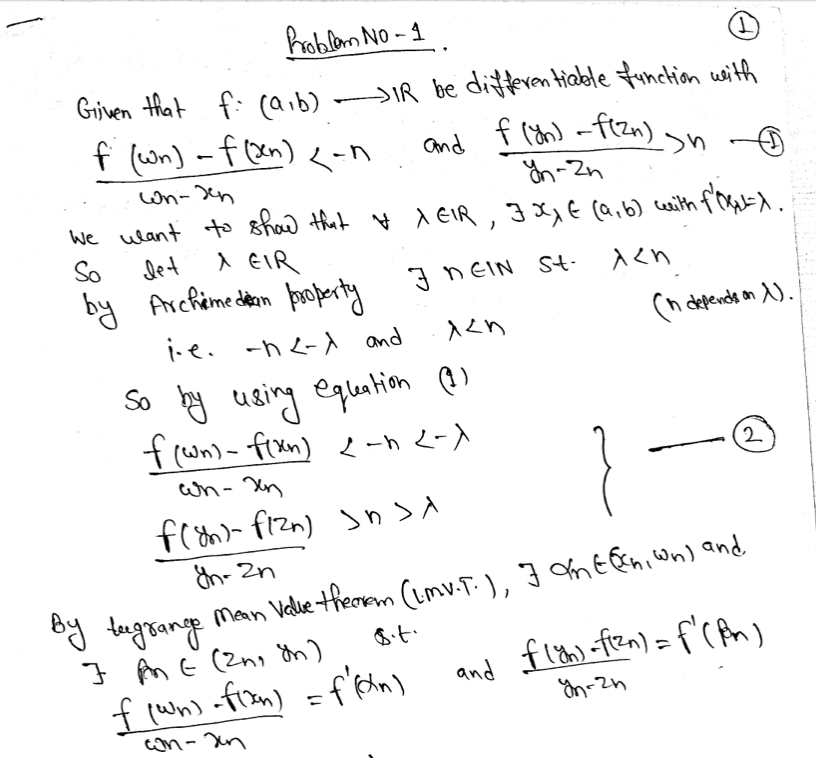 Problem NO - 1. ①
Given that f: (a,b) → IR be differentiable function with
f (wn) - f(xn) / wn - xn < -n and f (yn) - f(zn) / yn - zn > n — ①
We want to show that ∀ λ ∈ IR, ∃ xλ ∈ (a,b) with f'(xλ) = λ.
So let λ ∈ IR
by Archimedean property ∃ n ∈ IN st. λ < n
(n depends on λ).
i.e. -n < -λ and λ < n
So by using equation (1)
f (wn) - f(xn) / wn - xn < -n < -λ
f(yn) - f(zn) / yn - zn > n > λ } — ②
By lagrange Mean Value theorem (L.M.V.T.), ∃ αn ∈ (xn, wn) and
∃ βn ∈ (zn, yn) s.t.
f (wn) - f(xn) / wn - xn = f'(αn) and f(yn) - f(zn) / yn - zn = f'(βn)